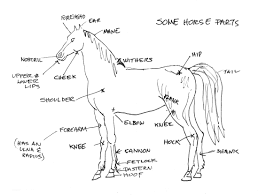 SOME HORSE PARTS
FOREHEAD
EAR
MANE
NOSTRIL
UPPER &
LOWER
LIPS
CHEEK
WITHERS
HIP
TAIL
SHOULDER
FLANK
ELBOW
KNEE
FOREARM
(HAS AN
ULNA &
RADIUS)
KNEE
HOCK
SHANK
CANNON
FETLOCK
PASTERN
HOOF